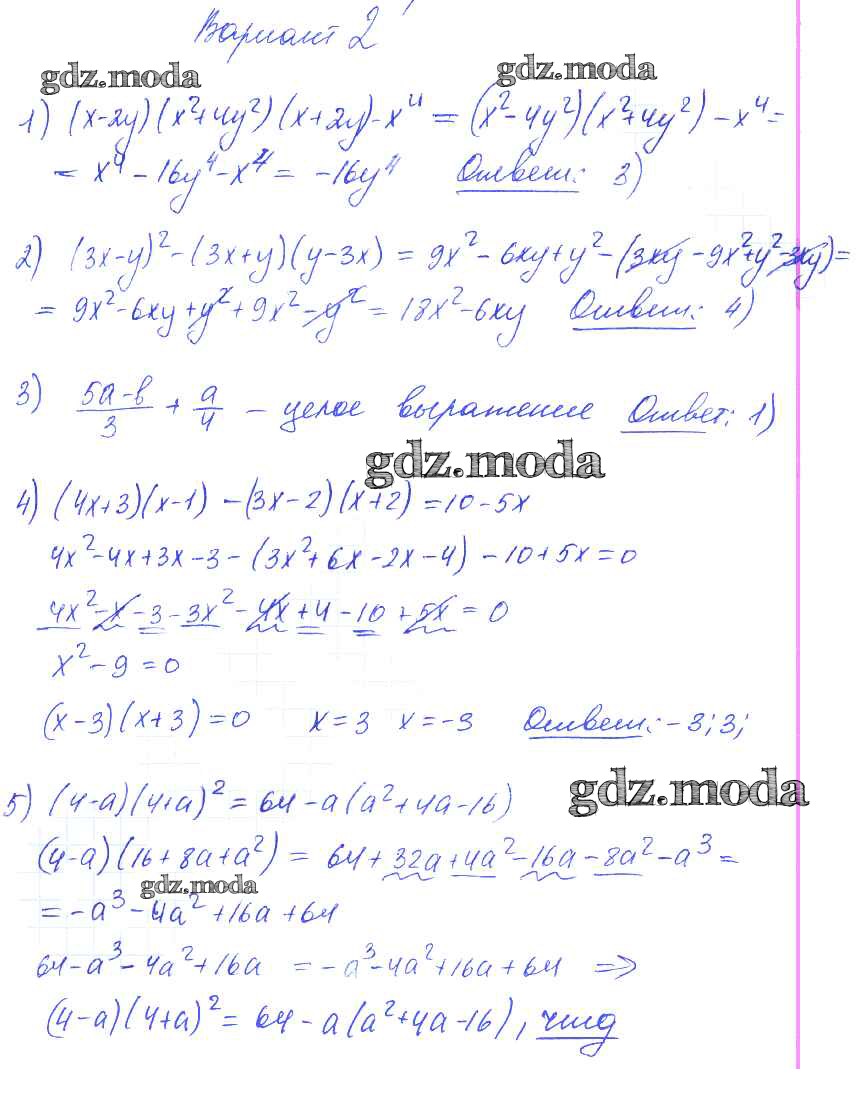 Вариант 2
gdz.moda gdz.moda
1) (x-2y)(x²+4y²)(x+2y)-x⁴ = (x²-4y²)(x²+4y²) - x⁴ =
= x⁴ - 16y⁴ - x⁴ = -16y⁴ Ответ: 3)
2) (3x-y)² - (3x+y)(y-3x) = 9x² - 6xy + y² - (3xy - 9x² + y² - 3xy) =
= 9x² - 6xy + y² + 9x² - y² = 18x² - 6xy Ответ: 4)
3) (5a-b)/3 + a/4 - целое выражение Ответ: 1)
gdz.moda
4) (4x+3)(x-1) - (3x-2)(x+2) = 10 - 5x
4x² - 4x + 3x - 3 - (3x² + 6x - 2x - 4) - 10 + 5x = 0
4x² - x - 3 - 3x² - 4x + 4 - 10 + 5x = 0
x² - 9 = 0
(x-3)(x+3) = 0 x = 3 x = -3 Ответ: -3; 3;
gdz.moda
5) (4-a)(4+a)² = 64 - a(a² + 4a - 16)
(4-a)(16 + 8a + a²) = 64 + 32a + 4a² - 16a - 8a² - a³ =
gdz.moda
= -a³ - 4a² + 16a + 64
64 - a³ - 4a² + 16a = -a³ - 4a² + 16a + 64 ⇒
(4-a)(4+a)² = 64 - a(a² + 4a - 16), чтд